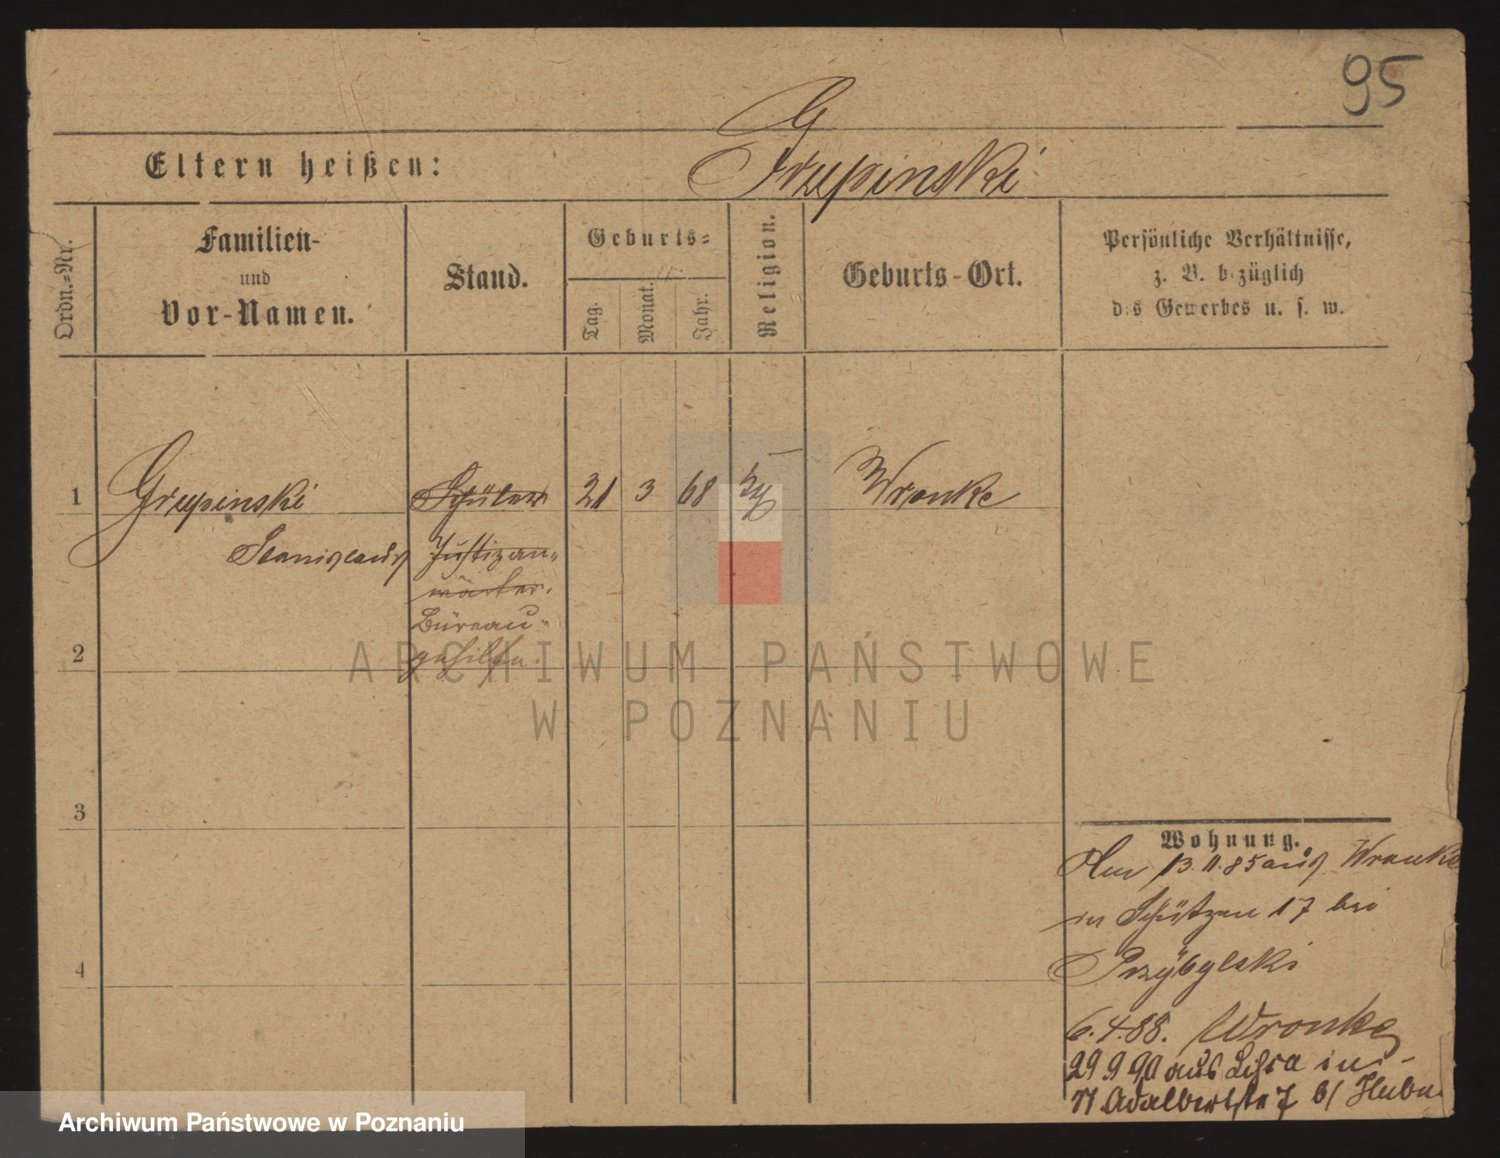 95
G
Eltern heißen:
Grzepinski
Ordn.-Nr.
Familien-
und
Vor-Namen.
Stand.
Geburts-
Tag.
Monat.
Jahr.
Religion.
Geburts-Ort.
Persönliche Verhältnisse,
z. B. bezüglich
des Gewerbes u. s. w.
1 Grzepinski Schüler 21 3 68 Wronke
Stanislaus Justizan-
wärter.
Büreau-
gehilfe.
2
3
4
Wohnung.
Am 13.11.85 aus Wronke
in Schützen 17 bei
Przybylski
6.4.88. Wronke
29 9 90 aus in
Adalbertstr 7 b/
ARCHIWUM PAŃSTWOWE
W POZNANIU
Archiwum Państwowe w Poznaniu